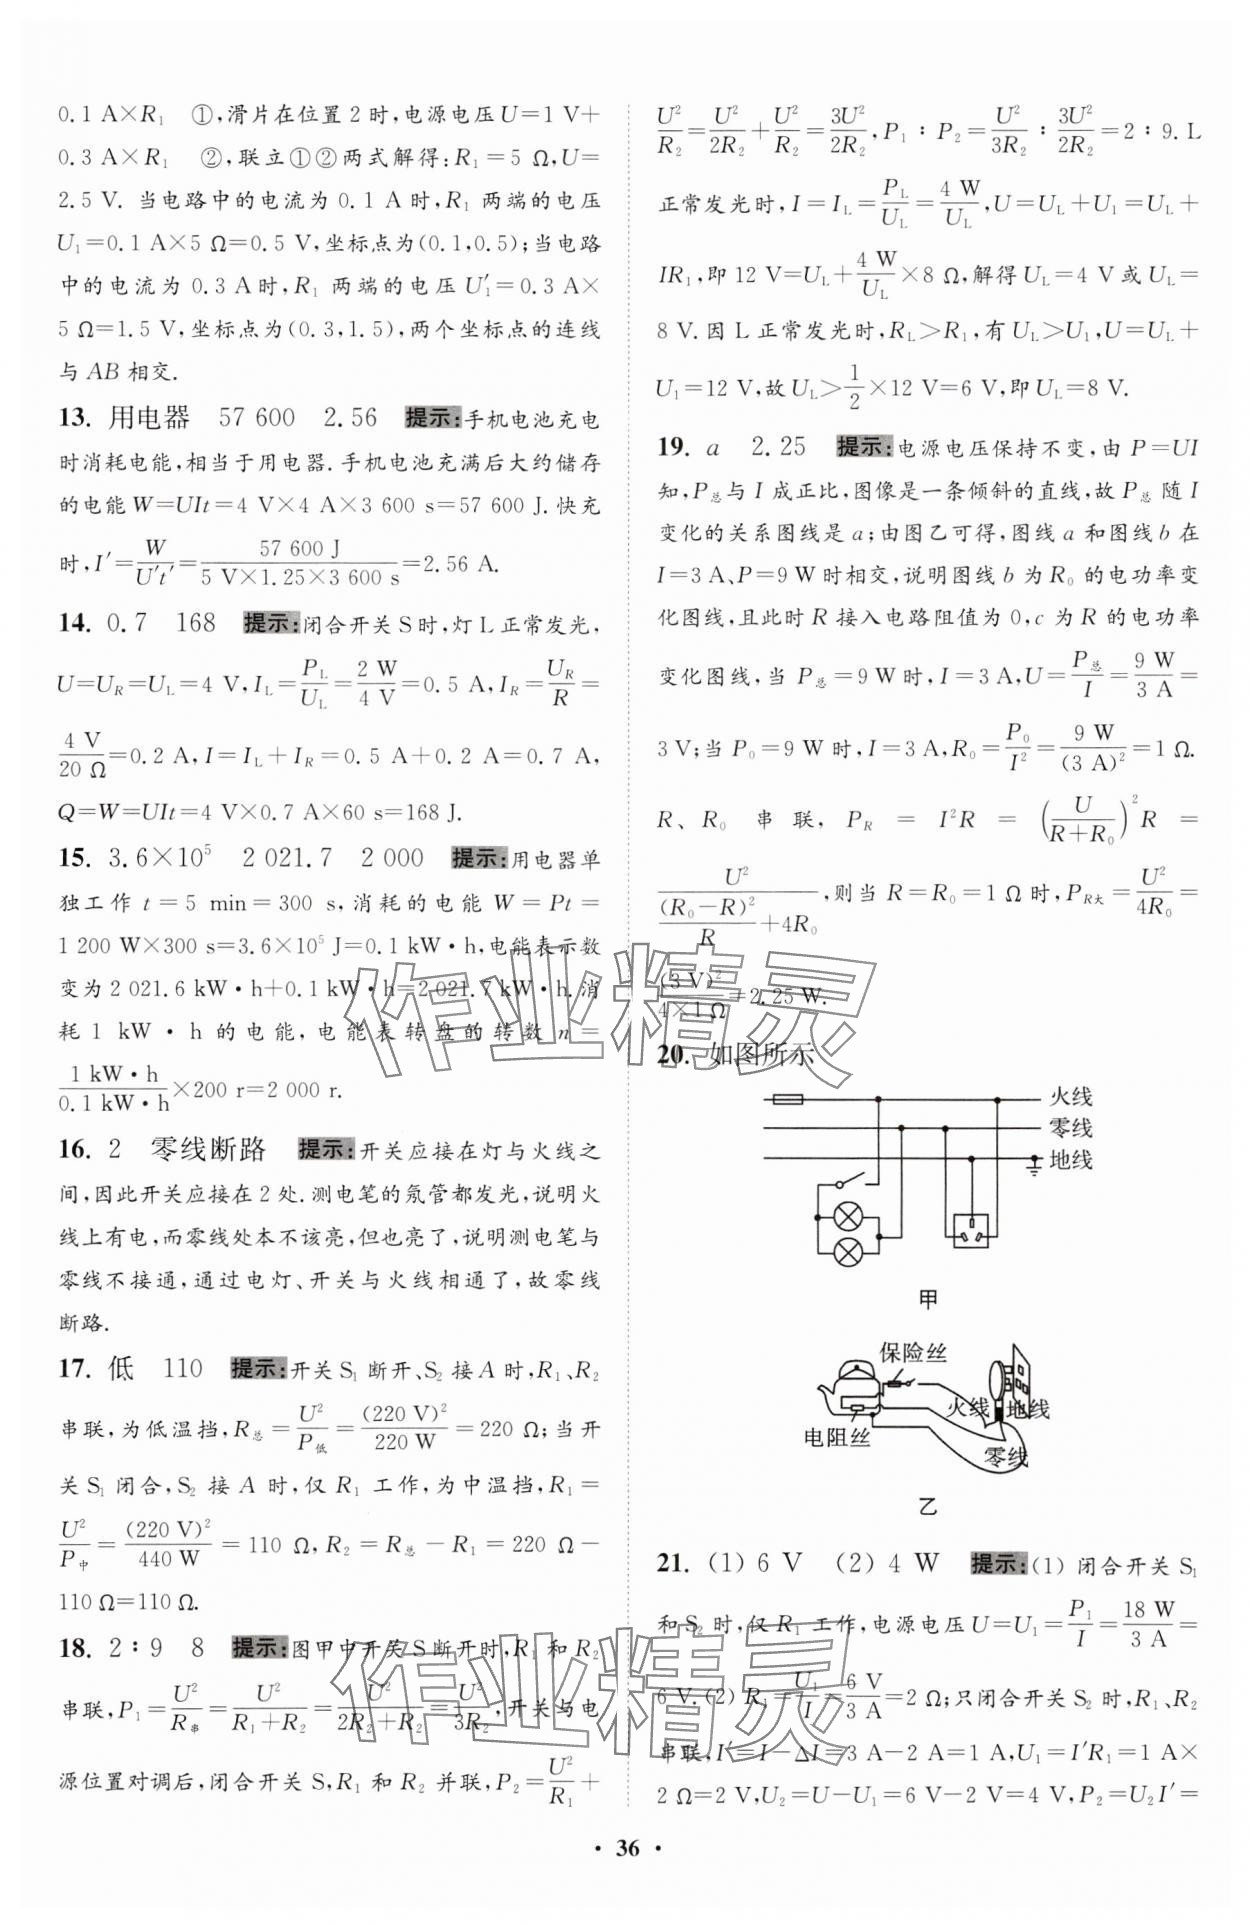 0.1 A×R₁　①,滑片在位置2时,电源电压U=1 V+
0.3 A×R₁　②,联立①②两式解得:R₁=5 Ω,U=
2.5 V. 当电路中的电流为 0.1 A时,R₁ 两端的电压
U₁=0.1 A×5 Ω=0.5 V,坐标点为(0.1,0.5);当电路
中的电流为 0.3 A时,R₁ 两端的电压U₁′=0.3 A×
5 Ω=1.5 V,坐标点为(0.3,1.5),两个坐标点的连线
与AB相交.
13. 用电器　57 600　2.56　提示:手机电池充电
时消耗电能,相当于用电器.手机电池充满后大约储存
的电能W=UIt=4 V×4 A×3 600 s=57 600 J.快充
时,I′=W/U′t′=57 600 J/(5 V×1.25×3 600 s)=2.56 A.
14. 0.7　168　提示:闭合开关S时,灯L正常发光,
U=U_R=U_L=4 V,I_L=P_L/U_L=2 W/4 V=0.5 A,I_R=U_R/R=
4 V/20 Ω=0.2 A,I=I_L+I_R=0.5 A+0.2 A=0.7 A,
Q=W=UIt=4 V×0.7 A×60 s=168 J.
15. 3.6×10⁵　2 021.7　2 000　提示:用电器单
独工作 t=5 min=300 s,消耗的电能 W=Pt=
1 200 W×300 s=3.6×10⁵ J=0.1 kW·h,电能表示数
变为2 021.6 kW·h+0.1 kW·h=2 021.7 kW·h.消
耗 1 kW·h 的电能,电能表转盘的转数 n=
1 kW·h/0.1 kW·h×200 r=2 000 r.
16. 2　零线断路　提示:开关应接在灯与火线之
间,因此开关应接在2处.测电笔的氖管都发光,说明火
线上有电,而零线处本不该亮,但也亮了,说明测电笔与
零线不接通,通过电灯、开关与火线相通了,故零线
断路.
17. 低　110　提示:开关S₁断开、S₂接A时,R₁、R₂
串联,为低温挡,R总=U²/P低=(220 V)²/220 W=220 Ω;当开
关S₁闭合,S₂接A时,仅R₁工作,为中温挡,R₁=
U²/P中=(220 V)²/440 W=110 Ω,R₂=R总-R₁=220 Ω-
110 Ω=110 Ω.
18. 2∶9　8　提示:图甲中开关S断开时,R₁和R₂
串联,P₁=U²/R串=U²/(R₁+R₂)=U²/(2R₂+R₂)=U²/3R₂,开关与电
源位置对调后,闭合开关S,R₁和R₂并联,P₂=U²/R₁+
U²/R₂=U²/2R₂+U²/R₂=3U²/2R₂,P₁∶P₂=U²/3R₂∶3U²/2R₂=2∶9.L
正常发光时,I=I_L=P_L/U_L=4 W/U_L,U=U_L+U₁=U_L+
IR₁,即12 V=U_L+4 W/U_L×8 Ω,解得U_L=4 V或U_L=
8 V.因L正常发光时,R_L>R₁,有U_L>U₁,U=U_L+
U₁=12 V,故U_L>1/2×12 V=6 V,即U_L=8 V.
19. a　2.25　提示:电源电压保持不变,由P=UI
知,P总与I成正比,图像是一条倾斜的直线,故P总随I
变化的关系图线是a;由图乙可得,图线a和图线b在
I=3 A、P=9 W时相交,说明图线b为R₀的电功率变
化图线,且此时R接入电路阻值为0,c为R的电功率
变化图线,当P总=9 W时,I=3 A,U=P总/I=9 W/3 A=
3 V;当P₀=9 W时,I=3 A,R₀=P₀/I²=9 W/(3 A)²=1 Ω.
R、R₀ 串联,P_R=I²R=(U/(R+R₀))²R=
U²/((R₀-R)²/R+4R₀),则当R=R₀=1 Ω时,P_R大=U²/4R₀=
(3 V)²/(4×1 Ω)=2.25 W.
20. 如图所示
火线
零线
地线
甲
保险丝
火线 地线
电阻丝
零线
乙
21. (1) 6 V　(2) 4 W　提示:(1) 闭合开关S₁
和S₂时,仅R₁工作,电源电压U=U₁=P₁/I=18 W/3 A=
6 V.(2) R₁=U₁/I=6 V/3 A=2 Ω;只闭合开关S₂时,R₁、R₂
串联,I′=I-ΔI=3 A-2 A=1 A,U₁=I′R₁=1 A×
2 Ω=2 V,U₂=U-U₁=6 V-2 V=4 V,P₂=U₂I′=
作业精灵
作业精灵
· 36 ·